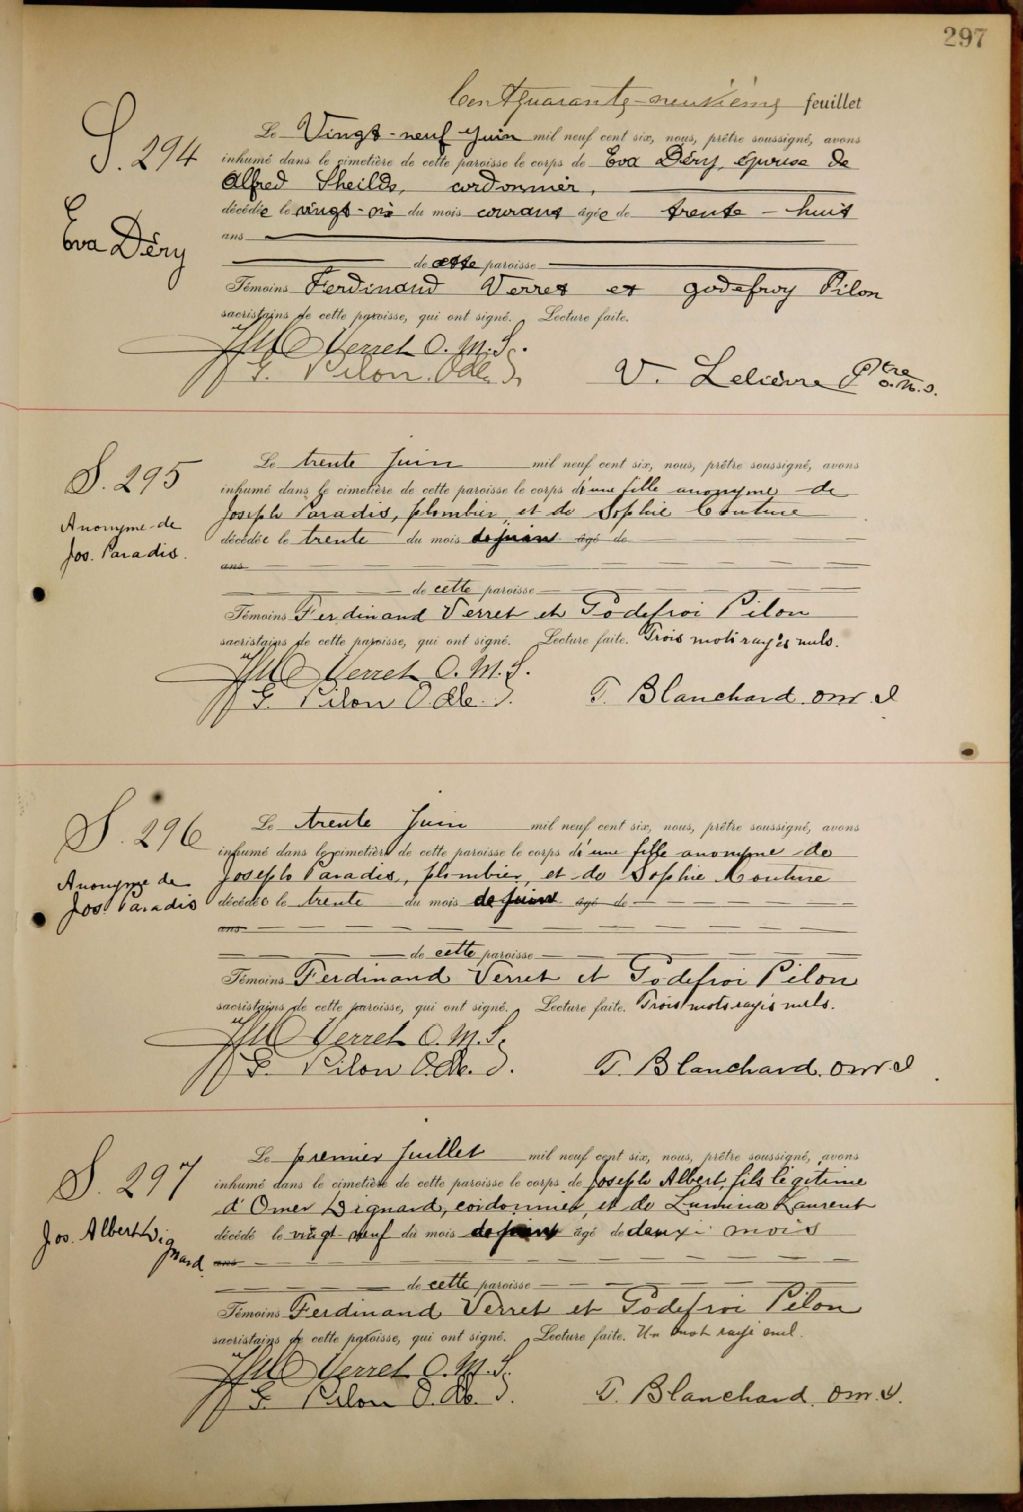 297
Cent quarante-neuvième feuillet
S. 294
Le Vingt-neuf Juin mil neuf cent six, nous, prêtre soussigné, avons
inhumé dans le cimetière de cette paroisse le corps de Eva Déry, épouse de
Alfred Sheilds, cordonnier,
décédée le vingt-six du mois courant âgée de trente-huit
ans
Eva Déry
de cette paroisse
Témoins Ferdinand Verret et Godefroy Pilon
sacristains de cette paroisse, qui ont signé. Lecture faite.
Verret O.M.I.
G. Pilon O.
V. Lelièvre Ptre
o.m.i.
S. 295
Anonyme de
Jos. Paradis.
Le trente Juin mil neuf cent six, nous, prêtre soussigné, avons
inhumé dans le cimetière de cette paroisse le corps d'une fille anonyme de
Joseph Paradis, plombier, et de Sophie Couture
décédée le trente du mois de juin âgé de
ans
de cette paroisse
Témoins Ferdinand Verret et Godefroi Pilon
sacristains de cette paroisse, qui ont signé. Lecture faite. Trois mots rayés nuls.
Verret O.M.I.
G. Pilon O.
T. Blanchard. O.M.I
S. 296
Anonyme de
Jos. Paradis
Le trente Juin mil neuf cent six, nous, prêtre soussigné, avons
inhumé dans le cimetière de cette paroisse le corps d'une fille anonyme de
Joseph Paradis, plombier, et de Sophie Couture
décédée le trente du mois de juin âgé de
ans
de cette paroisse
Témoins Ferdinand Verret et Godefroi Pilon
sacristains de cette paroisse, qui ont signé. Lecture faite. Trois mots rayés nuls.
Verret O.M.I.
G. Pilon O.
T. Blanchard. O.M.I
S. 297
Jos. Albert Dignard
Le premier Juillet mil neuf cent six, nous, prêtre soussigné, avons
inhumé dans le cimetière de cette paroisse le corps de Joseph Albert, fils légitime
d'Omer Dignard, cordonnier, et de Lumina Laurent
décédé le vingt-neuf du mois de juin âgé de deux mois
ans
de cette paroisse
Témoins Ferdinand Verret et Godefroi Pilon
sacristains de cette paroisse, qui ont signé. Lecture faite. Un mot rayé nul.
Verret O.M.I.
G. Pilon O.
T. Blanchard. O.M.I.